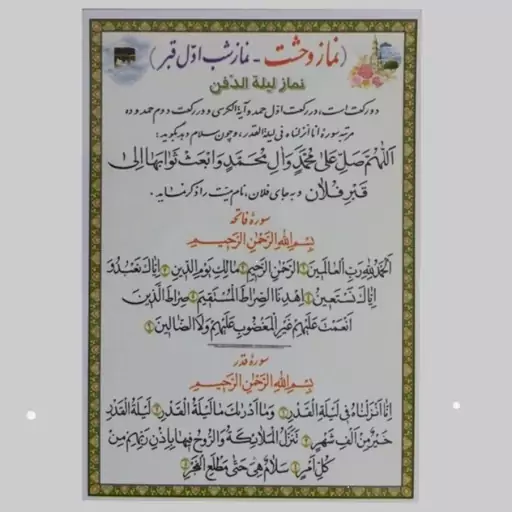 (نماز وحشت - نماز شب اوّل قبر)
نماز لیلة الدّفن
دو رکعت است، در رکعت اوّل حمد و آیة الکرسی و در رکعت دوم حمد و ده
مرتبه سورهٔ انا انزلناه فی لیلة القدر، و چون سلام دهد بگوید:
اَللّهُمَّ صَلِّ عَلیٰ مُحَمَّدٍ وَ الِ مُحَمَّدٍ وَ ابْعَثْ ثَوابَها اِلیٰ
قَبْرِ فُلانٍ و به جای فلان، نام میّت را ذکر نماید.
سورهٔ فاتحه
بِسْمِ اللهِ الرَّحْمٰنِ الرَّحیمِ
اَلْحَمْدُ لِلّهِ رَبِّ الْعالَمینَ ﴿۲﴾ اَلرَّحْمٰنِ الرَّحیمِ ﴿۳﴾ مالِكِ یَوْمِ الدّینِ ﴿۴﴾ اِیّاكَ نَعْبُدُ وَ
اِیّاكَ نَسْتَعینُ ﴿۵﴾ اِهْدِنَا الصِّراطَ الْمُسْتَقیمَ ﴿۶﴾ صِراطَ الَّذینَ
اَنْعَمْتَ عَلَیْهِمْ غَیْرِ الْمَغْضُوبِ عَلَیْهِمْ وَ لاَ الضّالّینَ ﴿۷﴾
سورهٔ قدر
بِسْمِ اللهِ الرَّحْمٰنِ الرَّحیمِ
اِنّا اَنْزَلْناهُ فی لَیْلَةِ الْقَدْرِ ﴿۱﴾ وَ ما اَدْریٰكَ ما لَیْلَةُ الْقَدْرِ ﴿۲﴾ لَیْلَةُ الْقَدْرِ
خَیْرٌ مِنْ اَلْفِ شَهْرٍ ﴿۳﴾ تَنَزَّلُ الْمَلائِکَةُ وَ الرُّوحُ فیها بِاِذْنِ رَبِّهِمْ مِنْ
کُلِّ اَمْرٍ ﴿۴﴾ سَلامٌ هِیَ حَتّیٰ مَطْلَعِ الْفَجْرِ ﴿۵﴾